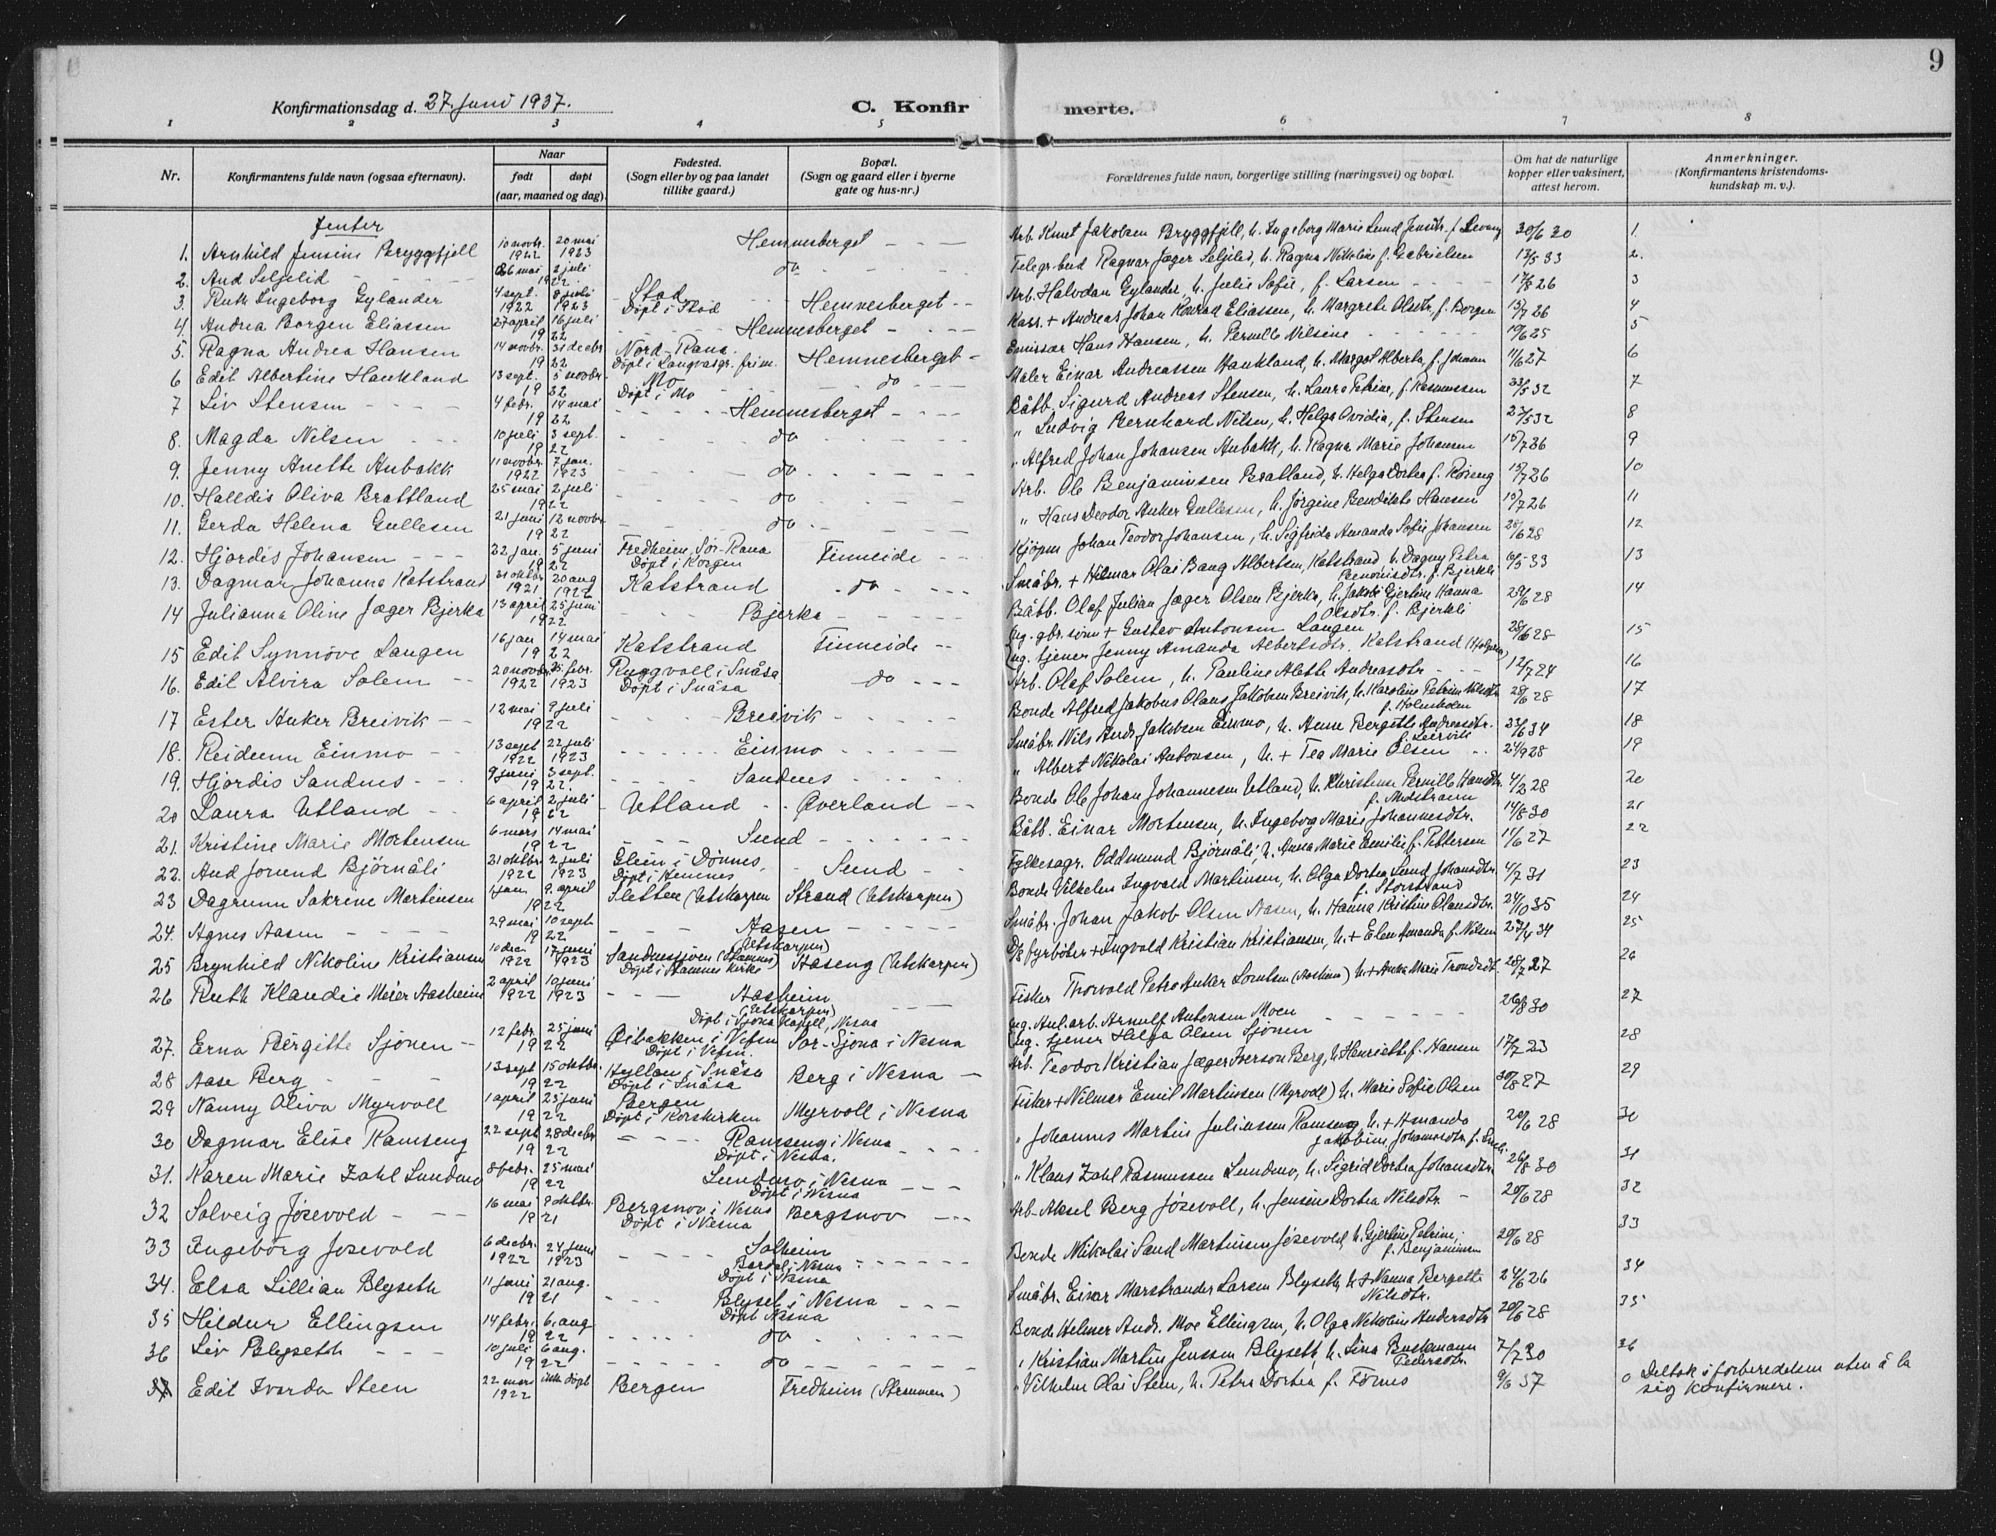 9
Konfirmationsdag d. 27. juni 1937.
C. Konfirmerte.
1 2 3 4 5 6 7 8
Nr.
Konfirmantens fulde navn (ogsaa efternavn).
Naar
født
døpt
(aar, maaned og dag)
Fødested.
(Sogn eller by og paa landet
tillike gaard.)
Bopæl.
(Sogn og gaard eller i byerne
gate og hus-nr.)
Forældrenes fulde navn, borgerlige stilling (næringsvei) og bopæl.
Om hat de naturlige
kopper eller vaksinert,
attest herom.
Anmerkninger.
(Konfirmantens kristendoms-
kundskap m. v.).
Jenter
1. Arnhild Jensine Bryggfjell 10 novbr. 1922 20 mai 1923 Hemnesberget Arb. Knut Jakobsen Bryggfjell, h. Ingeborg Marie Lund Jensdtr. f. Levang 30/6 20 1.
2. Aud Seljelid 26 mai 2 juli 1922 do Telegr.bud Ragnar Jæger Seljelid, h. Ragna Nikoline f. Gabrielsen 12/5 33 2.
3 Ruth Ingeborg Gylander 4 sept. 1922 8 juli 1923 Stod Døpt i Stod Hemnesberget Arb. Halvdan Gylander, h. Julie Sofie, f. Larsen 17/6 26 3
4 Andrea Borgen Eliassen 27 april 16 juli 1922 Hemnesberget Kass. + Andreas Johan Konrad Eliassen, h. Margrete Olsdtr. f. Borgen 15/7 26 4
5. Ragna Andrea Hansen 14 novbr. 31 decbr 1922 Nord-Rana. Døpt i Langvasgr. frim. Hemnesberget Emissær Hans Hansen, h. Pernille Nilsine 19/6 25 5
6 Edit Albertine Haukland 13 sept. 5 novbr. 1922 Mo Døpt i Mo do Maler Einar Andreassen Haukland, h. Margot Alberta, f. Johansen 11/6 27 6
7 Liv Stensen 4 febr. 14 mai 1922 Hemnesberget Båtb. Sigurd Andreas Stensen, h. Laura Petrine, f. Rasmussen 23/5 32 7
8. Magda Nilsen 10 juli 3 sept. 1922 do " Ludvig Bernhard Nilsen, h. Helga Ovidia, f. Stensen 27/5 32 8
9. Jenny Anette Aubakk 11 novbr. 1922 7 jan. 1923 do " Alfred Johan Johansen Aubakk, h. Ragna Marie Johansen 15/7 26 9
10. Halldis Oliva Brattland 25 mai 2 juli 1922 do Arb. Ole Benjaminsen Bratland, h. Helga Dortea f. Røseng 15/7 26 10
11. Gerda Helena Gullesen 21 juni 12 novbr. 1922 do " Hans Deodor Anker Gullesen, h. Jørgine Bendikte Hansen 15/7 26 11
12. Hjordis Johansen 22 jan. 5 juni 1922 Fredheim, Sør-Rana Døpt i Korgen Finneide Kjøpm Johan Teodor Johansen, h. Sigfrida Amanda Sofie Johansen 25/6 28 12
13. Dagmar Johanna Katstrand 31 oktbr 1921 20 aug 1922 Katstrand do Småbr. + Hilmar Olai Bang Albertsen, Katstrand, h. Dagny Petra Benonisdtr. f. Bjerkli 6/5 33 13
14 Julianna Oline Jæger Bjerka 13 april 25 juni 1922 Bjerka Båtb. Olaf Julian Jæger Olsen Bjerka, h. Jakobi Gjertine Hanna Olsdtr. f. Bjerkli 28/6 28 14
15 Edit Synnöve Langen 16 jan 14 mai 1922 Katstrand Finneide Ug. gbr. sønn + Gustav Antonsen Langen ug. tjener Jenny Amanda Albertsdtr. Katstrand 28/6 28 15
16. Edit Alvira Solem 20 novbr. 1922 25 febr. 1923 Ryggvoll i Snåsa Døpt i Snåsa do Arb. Olaf Solem, h. Pauline Aleth Andreasdtr 12/7 24 16
17 Ester Anker Breivik 12 mai 9 juli 1922 Breivik Bonde Alfred Jakobus Olaus Jakobsen Breivik, h. Karoline Petrine Nilsdtr f. Holmholm 28/6 28 17
18. Reidunn Einmo 13 sept 1922 22 juli 1923 Einmo Småbr. Nils Andr. Jakobsen Einmo, h. Anne Bergitte Andreasdtr. f. Leirvik 23/6 34 18
19. Hjordis Sandnes 9 juni 3 sept. 1922. Sandnes " Albert Nikolai Antonsen, h. + Tea Marie Olsen 24/9 28 19
20 Laura Utland 6 april 2 juli 1922 Utland Overland Bonde Ole Johan Johannesen Utland, h. Kristense Pernille Hansdtr. f. Midstrann 4/3 28 20
21. Kristine Marie Mortensen 6 mars 14 mai 1922 Sund Båtb. Einar Mortensen, h. Ingeborg Marie Johannesdtr. 14/8 30 21
22. Aud Jorund Björnåli 21 oktbr. 1922 2 juli 1923 Glein i Dønnes. Døpt i Hemnes Sund Fylkesagr. Oddmund Björnåli, h. Anna Marie Emilie f. Pettersen 11/6 27 22
23 Dagrunn Sakrine Martinsen 1 jan. 9 april 1922 Sletten (Utskarpen Strand (Utskarpen) Bonde Vilhelm Ingvald Martinsen, h. Olga Dortea Lund Johansdtr. f. Storstrand 4/7 31 23
24. Agnes Aasen 29 mai 10 sept 1922 Aasen (Utskarpen) Småbr. Johan Jakob Olsen Aasen, h. Hanna Kristine Olausdtr. 24/10 35 24
25 Brynhild Nikoline Kristiansen 10 dec. 1922 17 juni 1923 Sandnessjøen (Stamnes) Døpt i Stamnes kirke Haseng (Utskarpen) D/s fyrbøter + Ingvald Kristian Kristiansen, h. + Elen Amanda f. Nilsen 27/4 34 25
26 Ruth Klaudie Meier Aasheim 2 april 1922 10 juni 1923 Aasheim (Utskarpen) Døpt i Sjona kapell, Nesna Fisker Thorvald Petro Anker Lorntsen (Aasheim) h. + Anna Marie Trondsdtr. 28/7 27 26
27. Erna Bergitte Sjönen 12 febr. 25 juni 1922 Øibakken i Vefsn Døpt i Vefsn. Sør-Sjona i Nesna Ug. Anl.arb. Arnulf Antonsen Moen ug. tjener Helga Olsen Sjönen 26/8 30 27
28 Aase Berg 13 sept 15 oktbr. 1922 Hyllan i Snåsa Døpt i Snåsa Berg i Nesna Arb. Teodor Kristian Jæger Iverson Berg, h. Henriette f. Hansen 17/7 23 28
29 Nanny Oliva Myrvoll 1 april 25 juni 1922 Bergen Døpt i Korskirken Myrvoll i Nesna Fisker + Nilmar Emil Martinsen (Myrvoll) h. Marie Sofie Olsen 30/8 27 29
30 Dagmar Elise Ramseng 22 sept 28 decbr 1922 Ramseng i Nesna Døpt i Nesna. " Johannes Martin Juliussen Ramseng h. + Amanda Jakobine Johannesdtr. 20/6 28 30
31. Karen Marie Zahl Sundmo 8 febr. 25 mai 1922 Lundmo i Nesna Døpt i Nesna " Klaus Zahl Rasmussen Lundmo, h. Sigrid Dortea Johansdtr. 26/8 30 31
32 Solveig Jösevold 16 mai 9 oktbr. 1921 Bergsnov i Nesna Døpt i Nesna Bergsnov Arb. Aksel Berg Jösevoll, h. Jensine Dortea Nilsdtr. 20/6 28 32
33 Ingebörg Josevold 6 decbr. 1922 24 juni 1923 Solheim Bardal i Nesna Døpt i Nesna Bonde Nikolai Sand Martinsen Jösevold, h. Gjertine Petrine, f. Benjaminsen 20/6 28 33
34. Elsa Lillian Blyseth 11 juni 21 aug. 1921 Blyset i Nesna Døpt Nesna Småbr. Einar Marstrander Larsen Blyseth, h + Nanna Bergette Nilsdtr. 24/6 26 34
35 Hildur Ellingsen 14 febr. 6 aug 1922 do Bonde Helmer Andr. Moe Ellingsen, h. Olga Nikoline Andersdtr 20/6 28 35
36 Liv Blyseth 10 juli 6 aug. 1922 do " Kristian Martin Jenssen Blyseth, h. Lina Buskmann Pedersdtr. 7/7 30 36
37 Edit Ivarda Steen 22 mars 1922 ikke døpt Bergen Fredheim (Strommen) " Vilhelm Olai Steen, h. Petra Dortea f. Förnes 9/6 37 0 Deltok i forberedelsen uten å la
sig konfirmere.